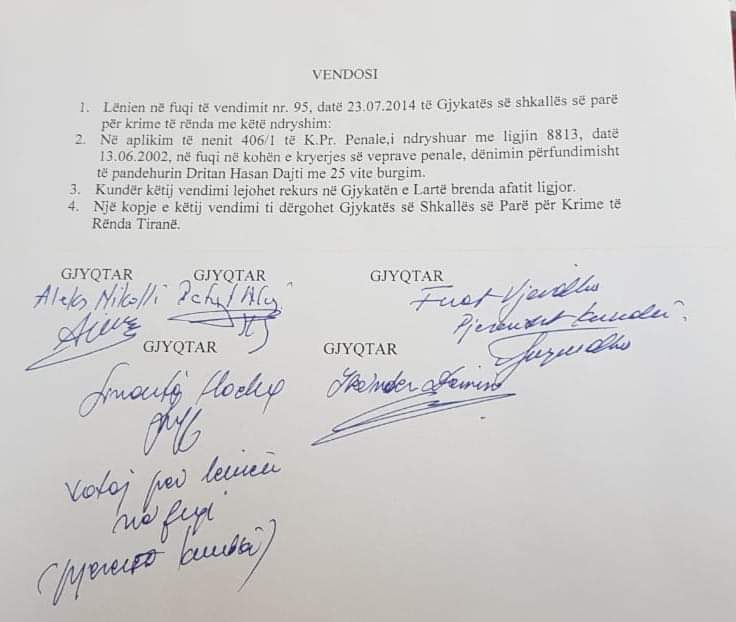 VENDOSI
1. Lënien në fuqi të vendimit nr. 95, datë 23.07.2014 të Gjykatës së shkallës së parë
për krime të rënda me këtë ndryshim:
2. Në aplikim të nenit 406/1 të K.Pr. Penale,i ndryshuar me ligjin 8813, datë
13.06.2002, në fuqi në kohën e kryerjes së veprave penale, dënimin përfundimisht
të pandehurin Dritan Hasan Dajti me 25 vite burgim.
3. Kundër këtij vendimi lejohet rekurs në Gjykatën e Lartë brenda afatit ligjor.
4. Një kopje e këtij vendimi ti dërgohet Gjykatës së Shkallës së Parë për Krime të
Rënda Tiranë.
GJYQTAR GJYQTAR GJYQTAR
Aleks Nikolli
GJYQTAR GJYQTAR
Votoj per lenien
në fuqi